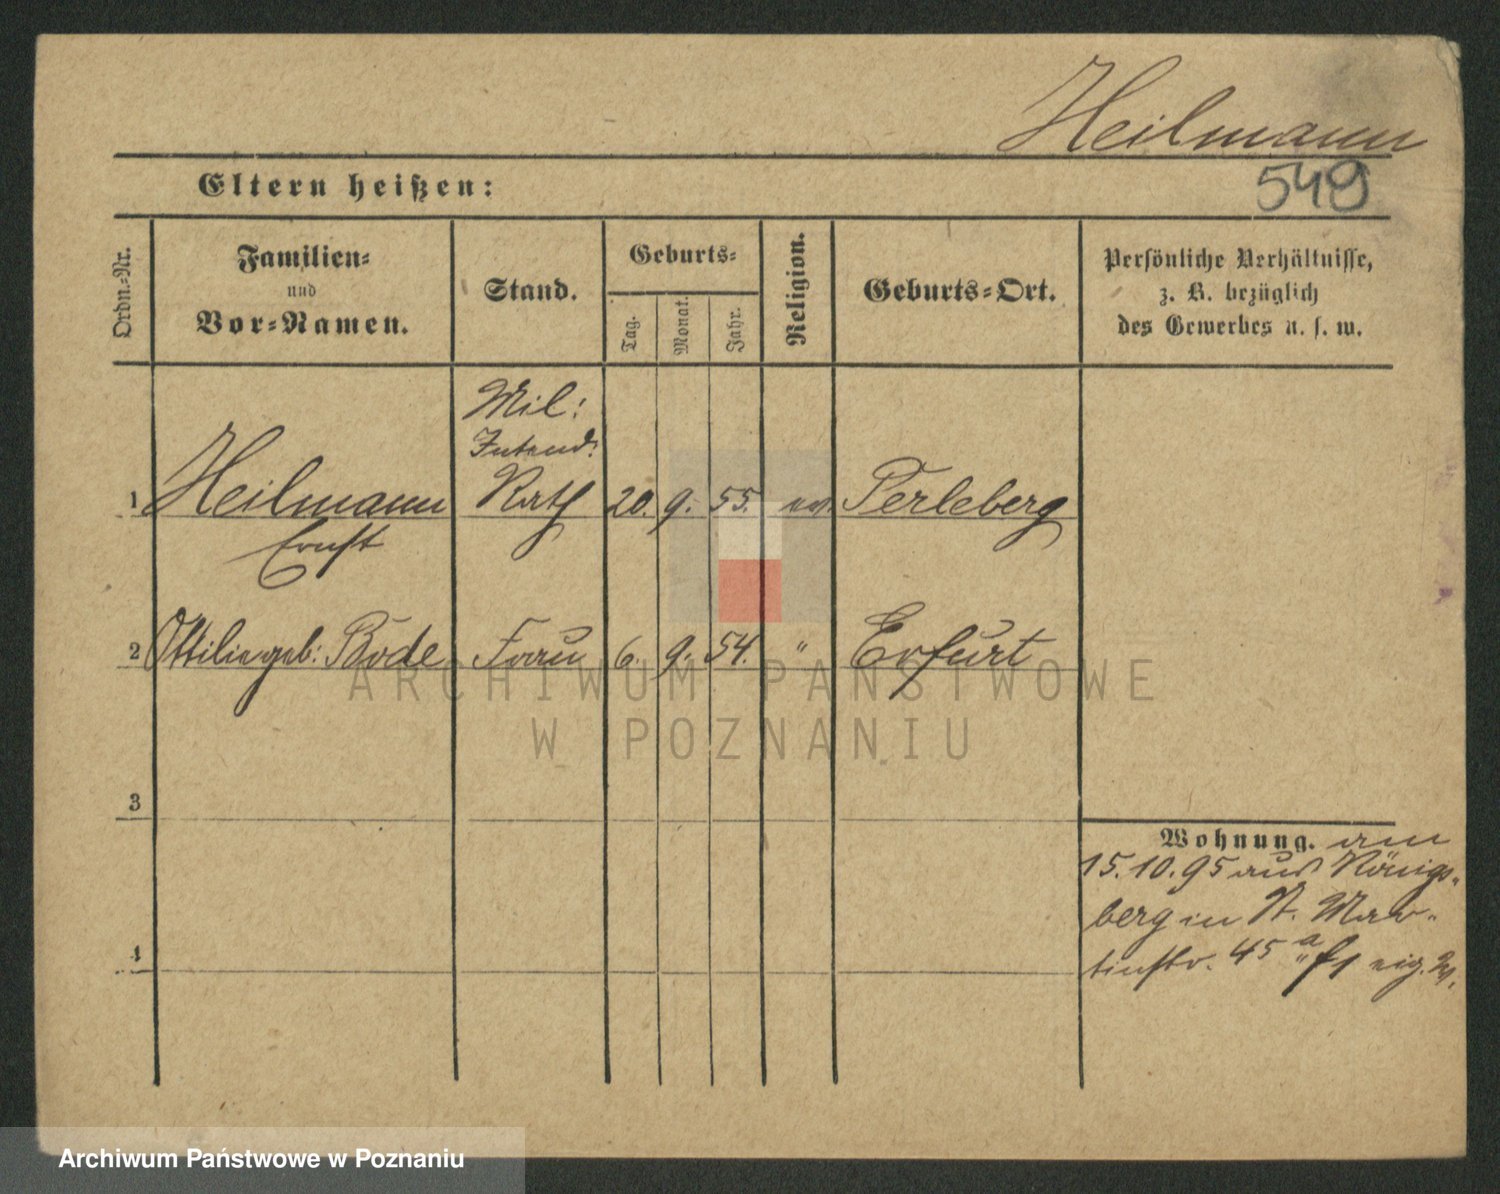 Heilmann
549
Eltern heißen:
Ordn.-Nr.
Familien-
und
Vor-Namen.
Stand.
Geburts-
Tag.
Monat.
Jahr.
Religion.
Geburts-Ort.
Persönliche Verhältnisse,
z. B. bezüglich
des Gewerbes u. s. w.
Mil:
Intend:
1 Heilmann Rath 20. 9. 55. ev. Perleberg
Ernst
2 Ottilie geb: Bode Frau 6. 9. 54. " Erfurt
3
4
Wohnung. am
15.10.95 aus Königs-
berg in St. Mar-
tinstr. 45a eig. W.
ARCHIWUM PAŃSTWOWE
W POZNANIU
Archiwum Państwowe w Poznaniu